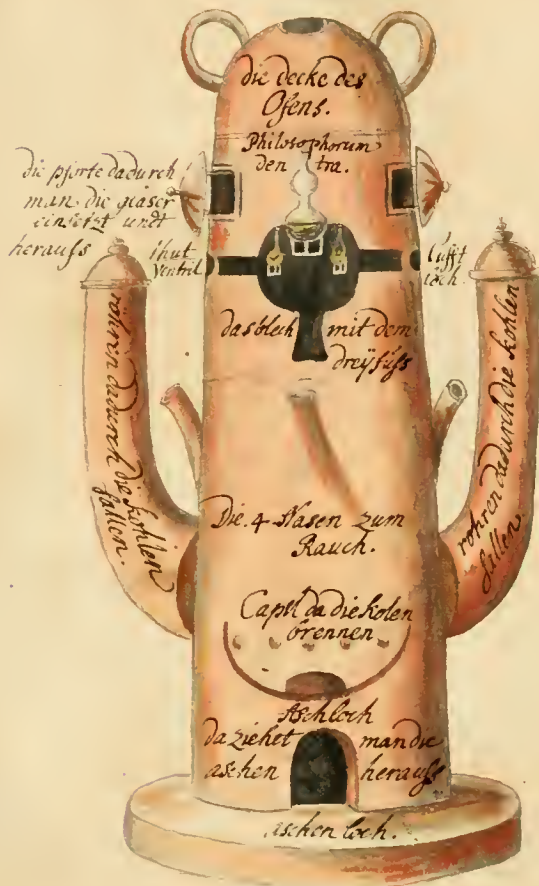 die decke des
Ofens.
Philosophorum
den tra.
die pforte dadurch
man die gläser
einsetzt undt
herauss
thut
Ventril
Lufft
loch.
das blech mit dem
dreÿfuss
röhrin dadurch die kohlen
fallen.
röhren dadurch die kohlen
fallen.
Die 4 Nasen zum
Rauch.
Capel da die kolen
brennen
Aschloch
da ziehet man die
aschen herauss
aschen loch.